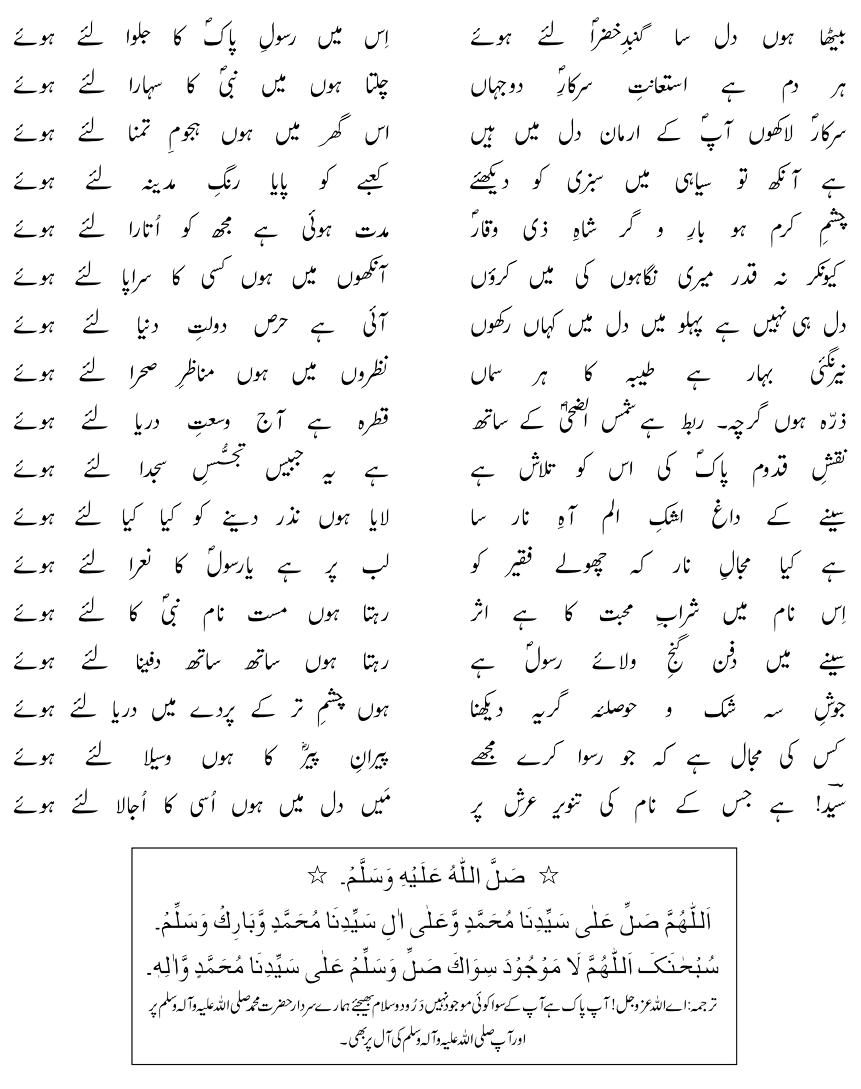 بیٹھا ہوں دل سا گنبدِ خضراؐ لئے ہوئے اِس میں رسولِ پاکؐ کا جلوا لئے ہوئے
ہر دم ہے استعانتِ سرکارِؐ دوجہاں چلتا ہوں میں نبیؐ کا سہارا لئے ہوئے
سرکارؐ لاکھوں آپؐ کے ارمان دل میں ہیں اس گھر میں ہوں ہجومِ تمنا لئے ہوئے
ہے آنکھ تو سیاہی میں سبزی کو دیکھئے کعبے کو پایا رنگِ مدینہ لئے ہوئے
چشمِ کرم ہو بارِ و گر شاہِ ذی وقارؐ مدت ہوئی ہے مجھ کو اُتارا لئے ہوئے
کیونکر نہ قدر میری نگاہوں کی میں کروں آنکھوں میں ہوں کسی کا سراپا لئے ہوئے
دل ہی نہیں ہے پہلو میں دل میں کہاں رکھوں آئی ہے حرص دولتِ دنیا لئے ہوئے
نیرنگئی بہار ہے طیبہ کا ہر سماں نظروں میں ہوں مناظرِ صحرا لئے ہوئے
ذرّہ ہوں گرچہ۔ ربط ہے شمس الضحیٰؐ کے ساتھ قطرہ ہے آج وسعتِ دریا لئے ہوئے
نقشِ قدوم پاکؐ کی اس کو تلاش ہے ہے یہ جبیں تجسُّسِ سجدا لئے ہوئے
سینے کے داغ اشکِ الم آہِ نار سا لایا ہوں نذر دینے کو کیا کیا لئے ہوئے
ہے کیا مجالِ نار کہ چھولے فقیر کو لب پر ہے یارسولؐ کا نعرا لئے ہوئے
اِس نام میں شرابِ محبت کا ہے اثر رہتا ہوں مست نام نبیؐ کا لئے ہوئے
سینے میں دفن گنجِ ولائے رسولؐ ہے رہتا ہوں ساتھ ساتھ دفینا لئے ہوئے
جوشِ سہ شک و حوصلئہ گریہ دیکھنا ہوں چشمِ تر کے پردے میں دریا لئے ہوئے
کس کی مجال ہے کہ جو رسوا کرے مجھے پیرانِ پیرؓ کا ہوں وسیلا لئے ہوئے
سیّد! ہے جس کے نام کی تنویر عرش پر مَیں دل میں ہوں اُسی کا اُجالا لئے ہوئے
☆ صَلَّ اللّٰهُ عَلَيْهِ وَسَلَّمْ۔ ☆
اَللّٰهُمَّ صَلِّ عَلٰی سَيِّدِنَا مُحَمَّدٍ وَّعَلٰی اٰلِ سَيِّدِنَا مُحَمَّدٍ وَّبَارِكْ وَسَلِّمْ۔
سُبْحٰنَكَ اَللّٰهُمَّ لَا مَوْجُوْدَ سِوَاكَ صَلِّ وَسَلِّمْ عَلٰی سَيِّدِنَا مُحَمَّدٍ وَّاٰلِهٖ۔
ترجمہ: اے اللہ عزوجل! آپ پاک ہے آپ کے سوا کوئی موجود نہیں دَرُود وسلام بھیجئے ہمارے سردار حضرت محمد صلی اللہ علیہ وآلہ وسلم پر
اور آپ صلی اللہ علیہ وآلہ وسلم کی آل پر بھی۔